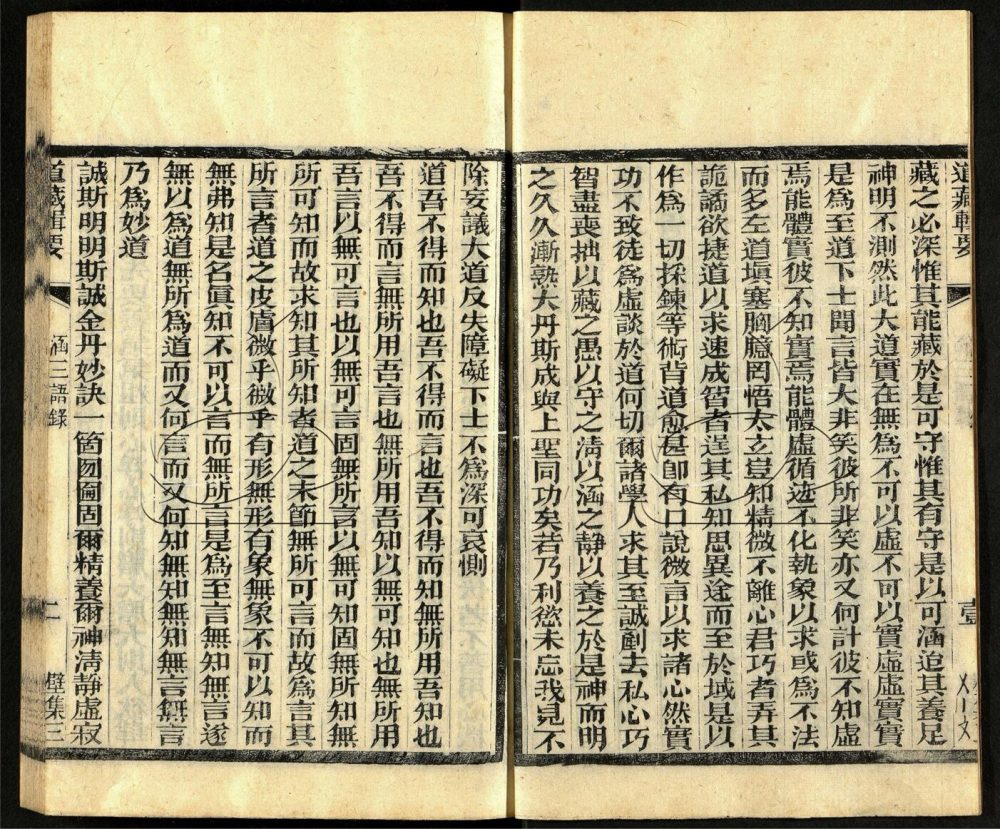 道藏輯要
藏之必深惟其能藏於是可守惟其有守是以可涵迨其養足
神明不測然此大道實在無為不可以虛不可以實虛虛實實
是為至道下士聞言皆大非笑彼所非笑亦又何計彼不知虛
焉能體實彼不知實焉能體虛循迹不化執象以求或為不法
而多左道塡塞胸臆罔悟太玄豈知精微不離心君巧者弄其
詭譎欲捷道以求速成智者逞其私知思異途而至於域是以
作為一切採鍊等術背道愈甚卽有口說微言以求諸心然實
功不致徒為虛談於道何切爾諸學人求其至誠剷去私心巧
智盡喪拙以藏之愚以守之淸以涵之靜以養之於是神而明
之久久漸熟大丹斯成與上聖同功矣若乃利慾未忘我見不
除妄議大道反失障礙下士不為深可哀惻
道吾不得而知也吾不得而言也吾不得而知無所用吾知也
吾不得而言無所用吾言也無所用吾知以無可知也無所用
吾言以無可言也以無可言固無所言以無可知固無所知無
所可知而故求知其所知者道之末節無所可言而故為言其
所言者道之皮膚微乎微乎有形無形有象無象不可以知而
無弗知是名眞知不可以言而無所言是為至言無知無言遂
無以為道無所為道而又何言而又何知無知無知無言無言
乃為妙道
誠斯明明斯誠金丹妙訣一箇囫圇固爾精養爾神淸靜虛寂
道藏輯要
涵三語錄
二
壁集三